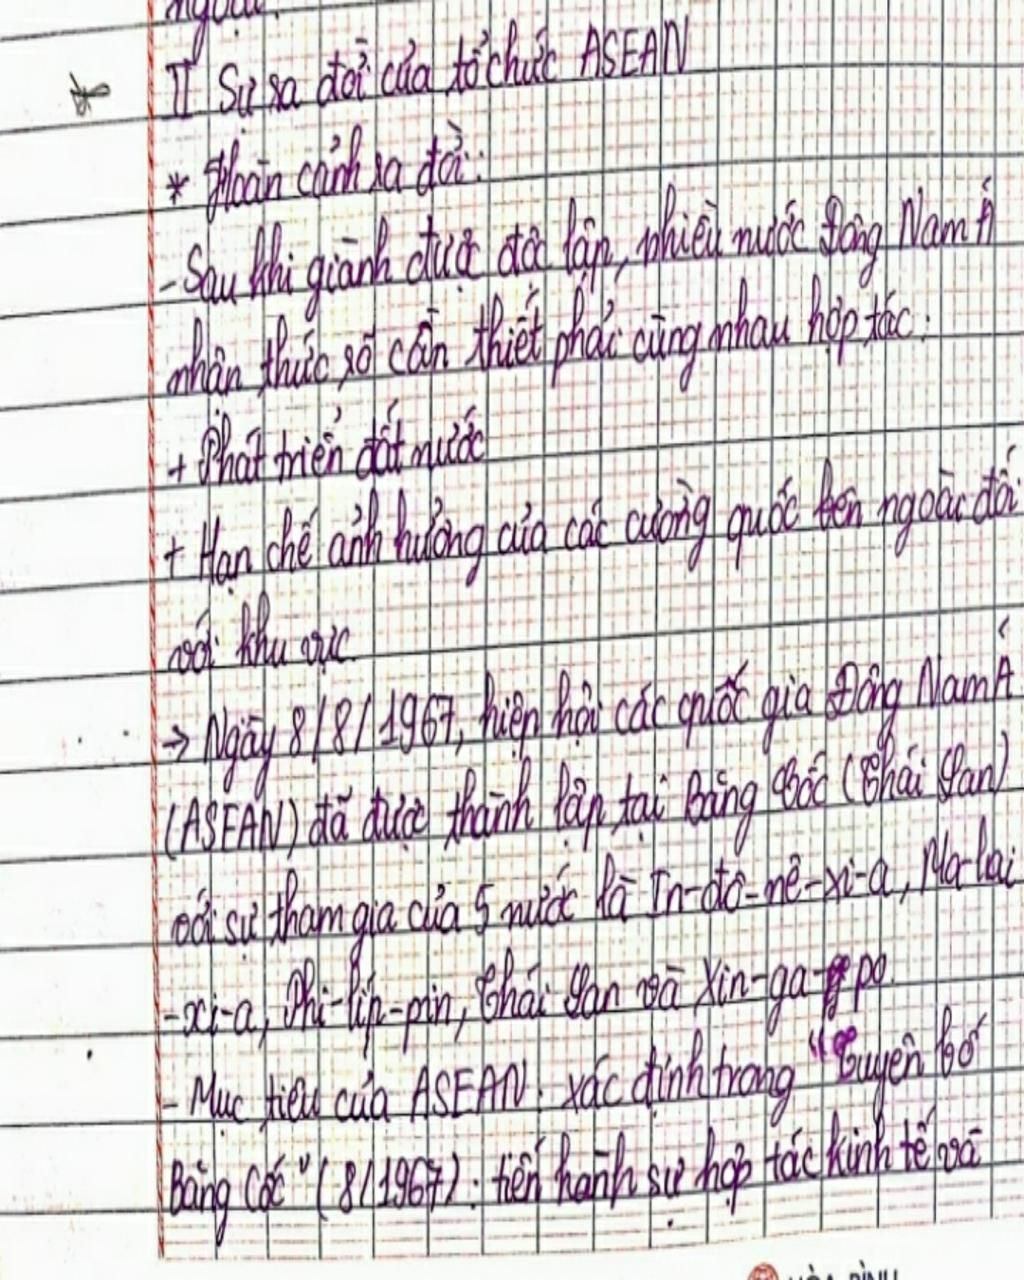 ngoài.
II Sự ra đời của tổ chức ASEAN
* Hoàn cảnh ra đời:
- Sau khi giành được độc lập, nhiều nước Đông Nam Á
nhận thức rõ cần thiết phải cùng nhau hợp tác:
+ Phát triển đất nước
+ Hạn chế ảnh hưởng của các cường quốc bên ngoài đối
với khu vực
→ Ngày 8/8/1967, hiệp hội các quốc gia Đông Nam Á
(ASEAN) đã được thành lập tại Băng Cốc (Thái Lan)
với sự tham gia của 5 nước là In-đô-nê-xi-a, Ma-lai
-xi-a, Phi-líp-pin, Thái Lan và Xin-ga-po.
- Mục tiêu của ASEAN: xác định trong "Tuyên bố
Băng Cốc" (8/1967): tiến hành sự hợp tác kinh tế và
HÒA BÌNH